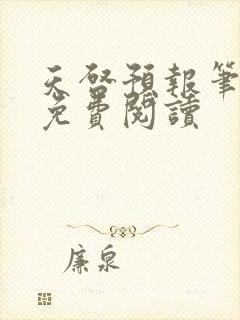 天啓預報筆
免費閱讀
廉泉